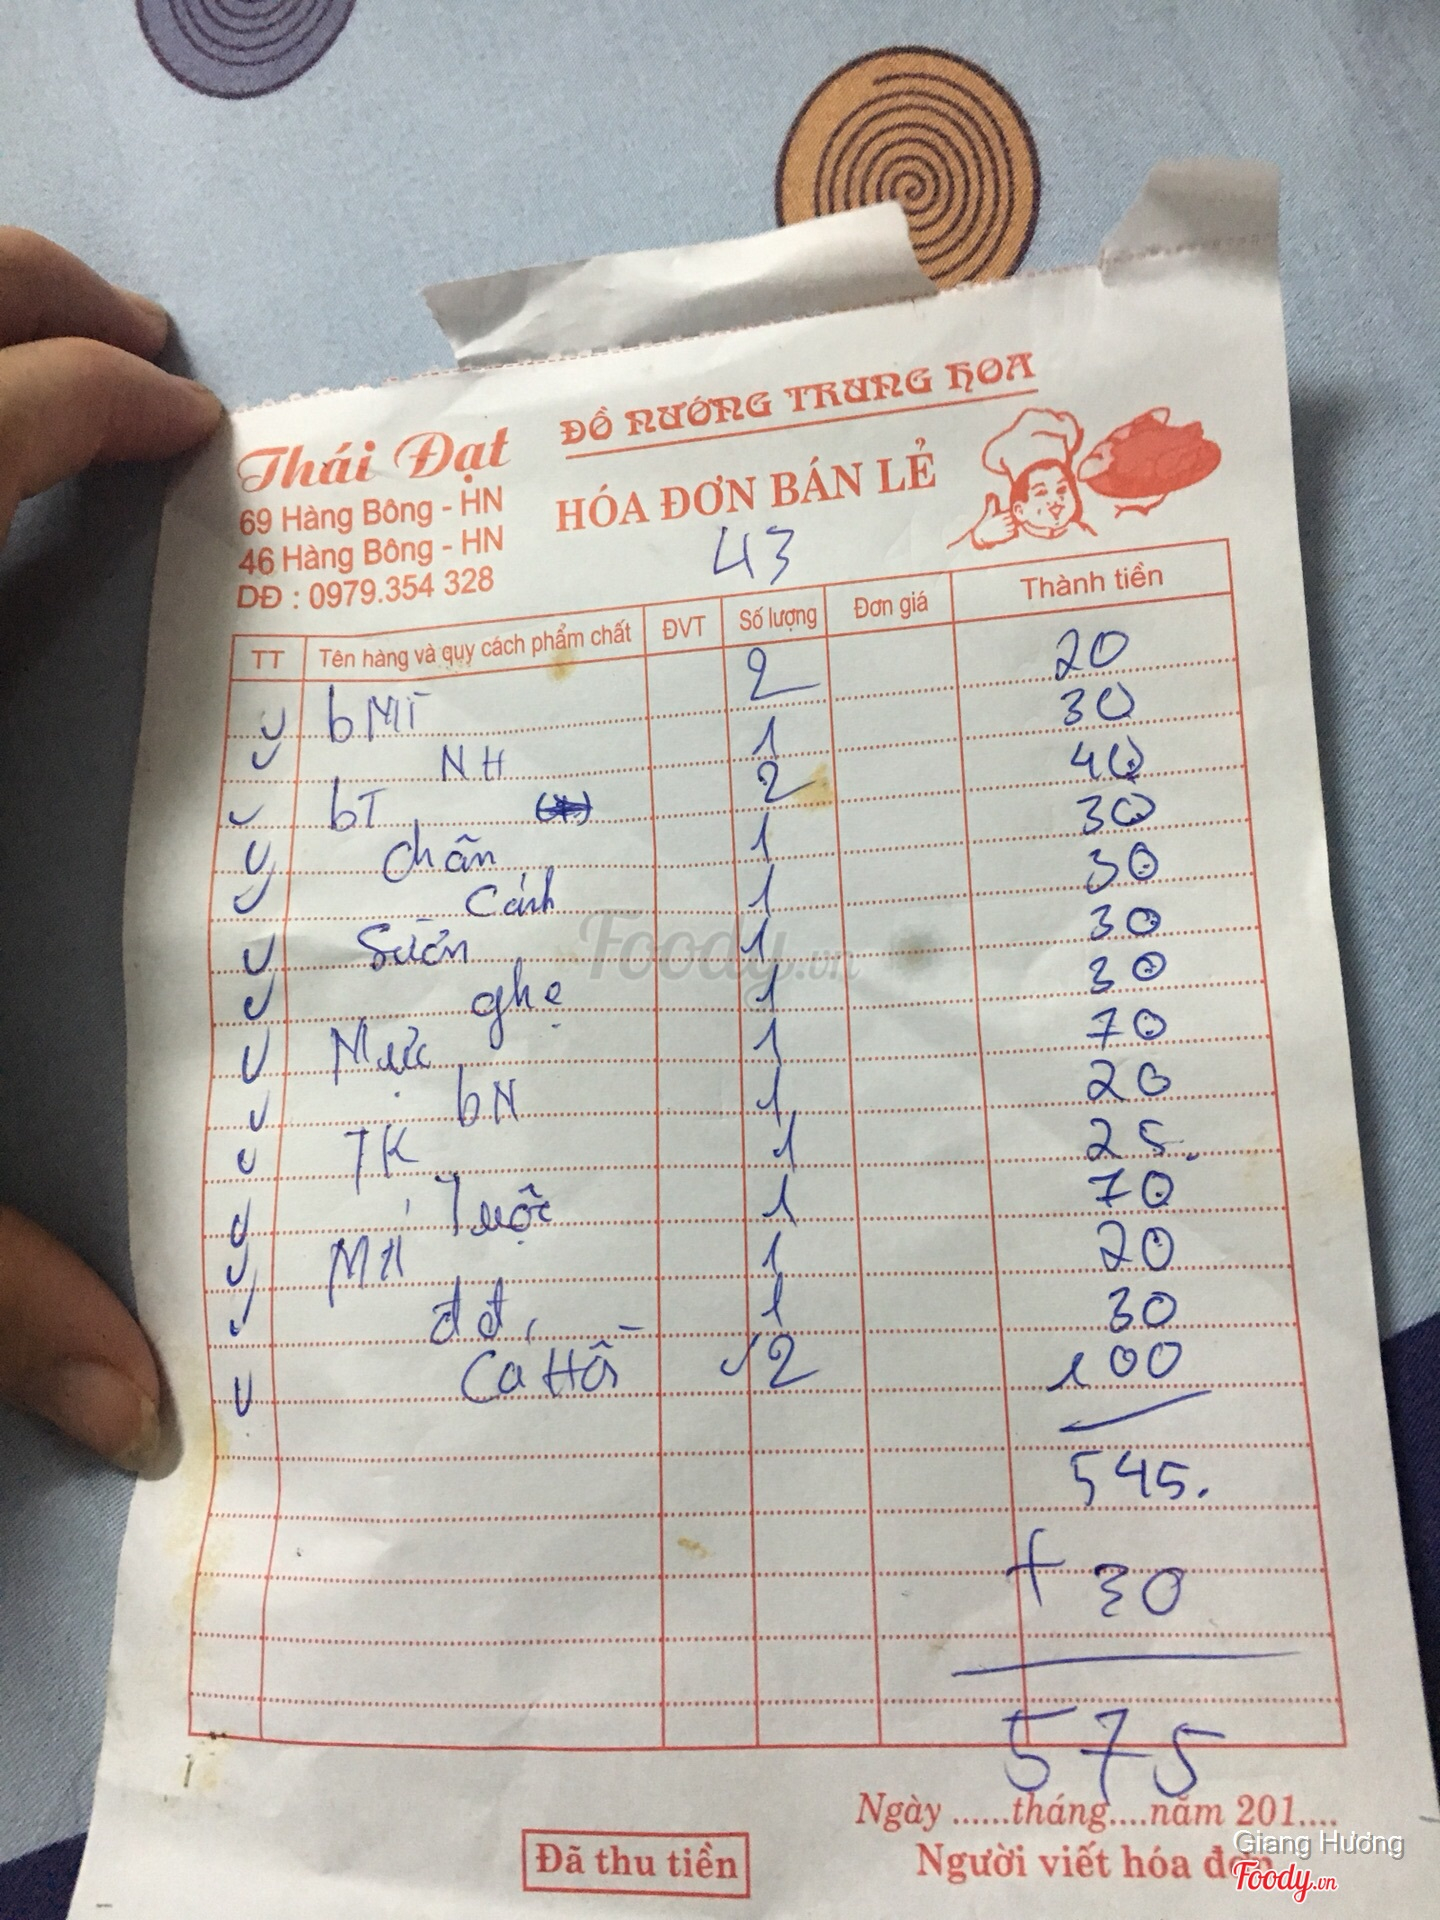 Thái Đạt
69 Hàng Bông - HN
46 Hàng Bông - HN
DĐ : 0979.354 328
ĐỒ NƯỚNG TRUNG HOA
HÓA ĐƠN BÁN LẺ
43
TT Tên hàng và quy cách phẩm chất ĐVT Số lượng Đơn giá Thành tiền
bMT 2 20
NH 1 30
bT 2 40
chân 1 30
cánh 1 30
Sườn 1 30
ghẹ 1 30
Mực 1 70
bN 1 20
TK 1 25.
1 70
1 20
đđ 1 30
Cá Hồi 2 100
545.
+ 30
575
Ngày ......tháng....năm 201....
Đã thu tiền
Người viết hóa đơn
Foody.vn
Giang Hương
Foody.vn